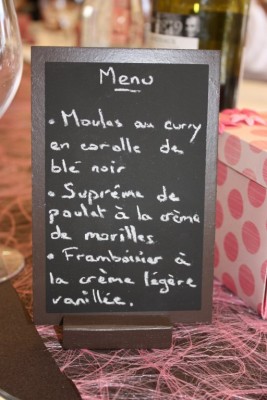 Menu
• Moules au curry
en corolle de
blé noir
• Suprême de
poulet à la crème
de morilles
• Framboisier à
la crème légère
vanillée.